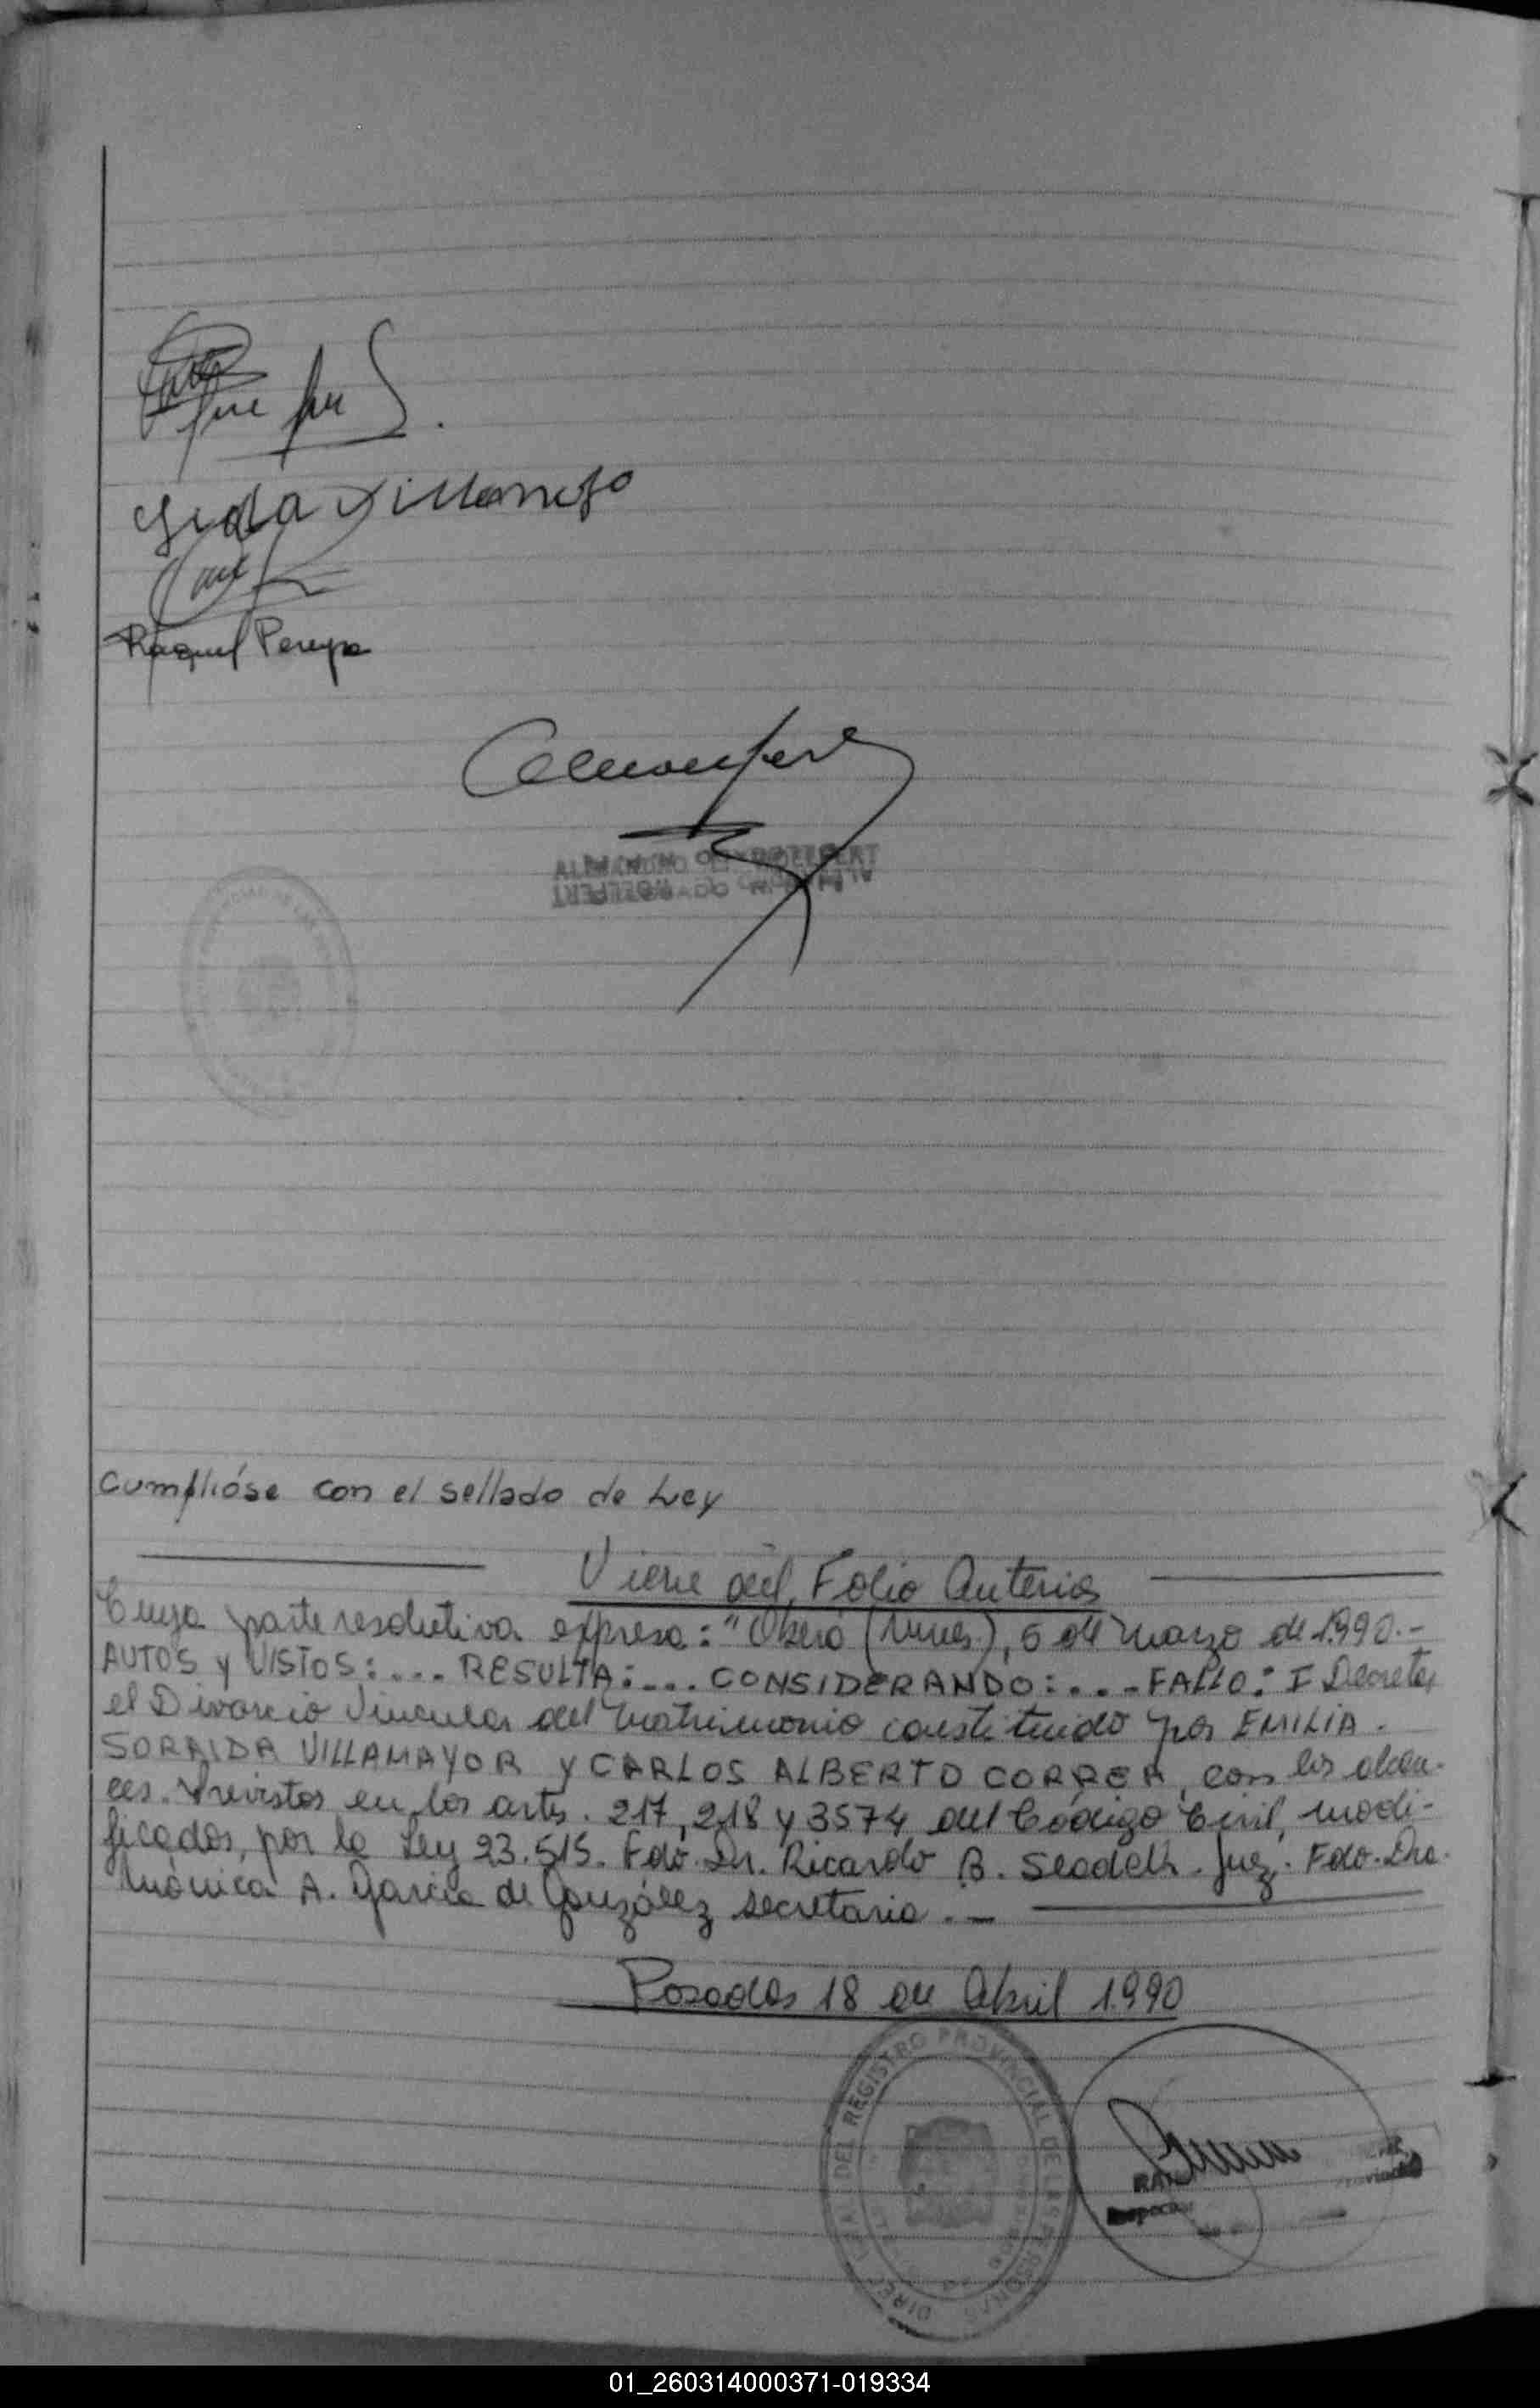 Raquel Pereyra
Cumplióse con el sellado de Ley
Viene del Folio Anterior
Cuya parte resolutiva expresa: "Oberá (Mnes.), 5 de Marzo de 1.990.-
AUTOS Y VISTOS:.... RESULTA:.... CONSIDERANDO:.... FALLO: I Decretar
el Divorcio Vincular del Matrimonio constituido por EMILIA
SORAIDA VILLAMAYOR Y CARLOS ALBERTO CORREA, con los alcan-
ces. Previstos en los arts. 217, 218 y 3574 del Código Civil, modi-
ficados, por la Ley 23.515. Fdo. Dr. Ricardo B. Juez. Fdo. Dra.
Mónica A. García de González Secretaria.-
Posadas 18 de Abril 1.990
DEL REGISTRO PROVINCIAL DE LAS PERSONAS
01_260314000371-019334